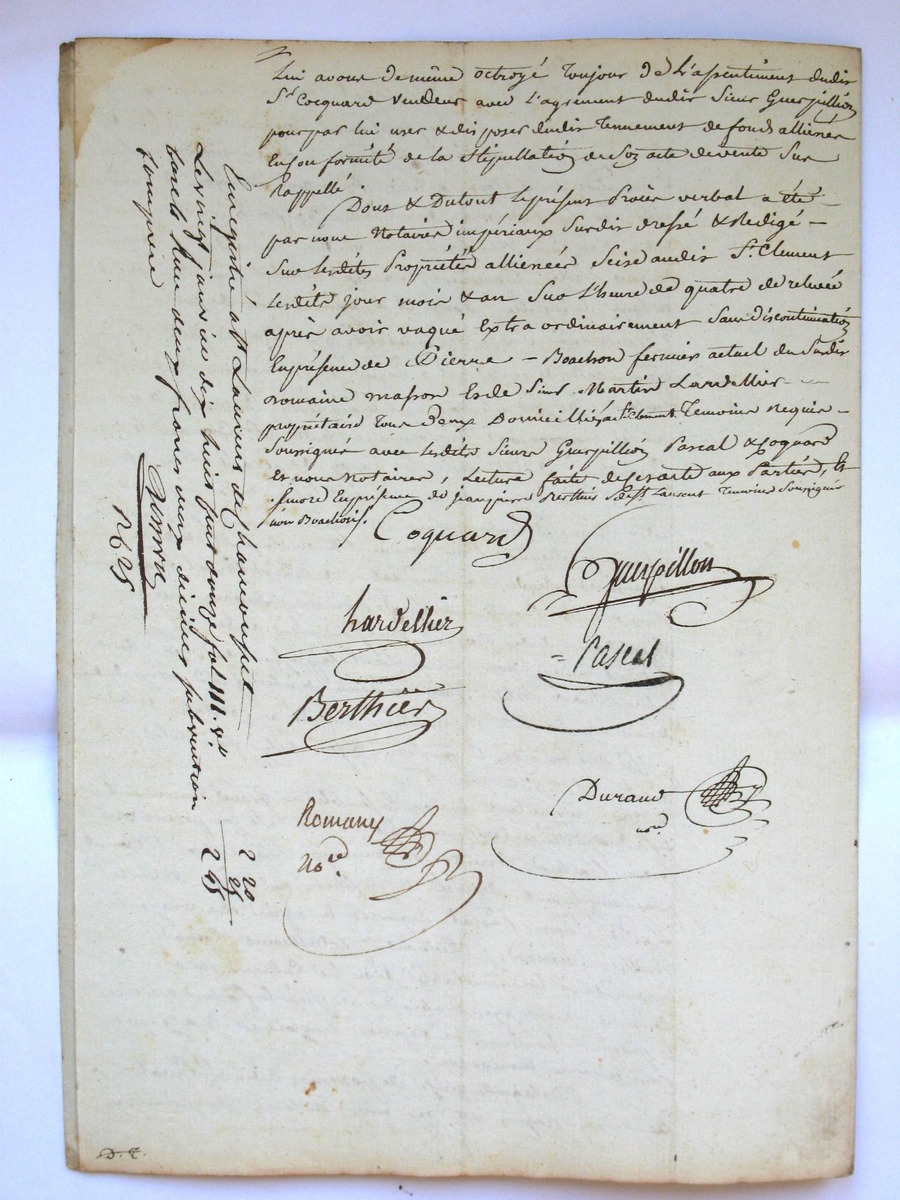 Lui avons de même octroyé toujour de L'assentiment dudit
Sr Cocquard vendeur avec L'agrement dudit Sieur Guerpillion
pour par lui user & disposer dudit tennement de fonds alliené
En conformité de la Stipullation de Son acte de vente Sus
Rappellé
Dont & Dutout Le présent Procès verbal a été
par nous Notaires impériaux Susdit dressé & Redigé
Sur Lesdites Propriétés allienées Scise audit St. Clement
Lesdits jour mois & an Sur L'heure de quatre de relevée
après avoir vaqué Extraordinairement Sans Discontinuation
En présence de Pierre Boachon fermier actuel du Susdit
romaine masson Et de Sieur Martin Lardellier
propriétaire tous deux Domicilliés a St. Clement Temoins Requis
Soussignés avec Lesdits Sieurs Guerpillion Pascal & Coquard
Et nous Notaires, Lecture faite du Restant aux Parties, Et
Encore En présence de Jean pierre Berthier de St Laurent Temoins Soussignés
non Boachon.
Coquard
Guerpillon
Lardellier
Pascal
Berthier
Durand
nore
Romany
nore
Enregistré a St Laurent de Chamousset
Le vingt janvier dix huit cent douze fol. 111. vo
Reçu deux francs vingt centimes subvention
comprise
2 20
25
2 45
2f. 25
D. T.